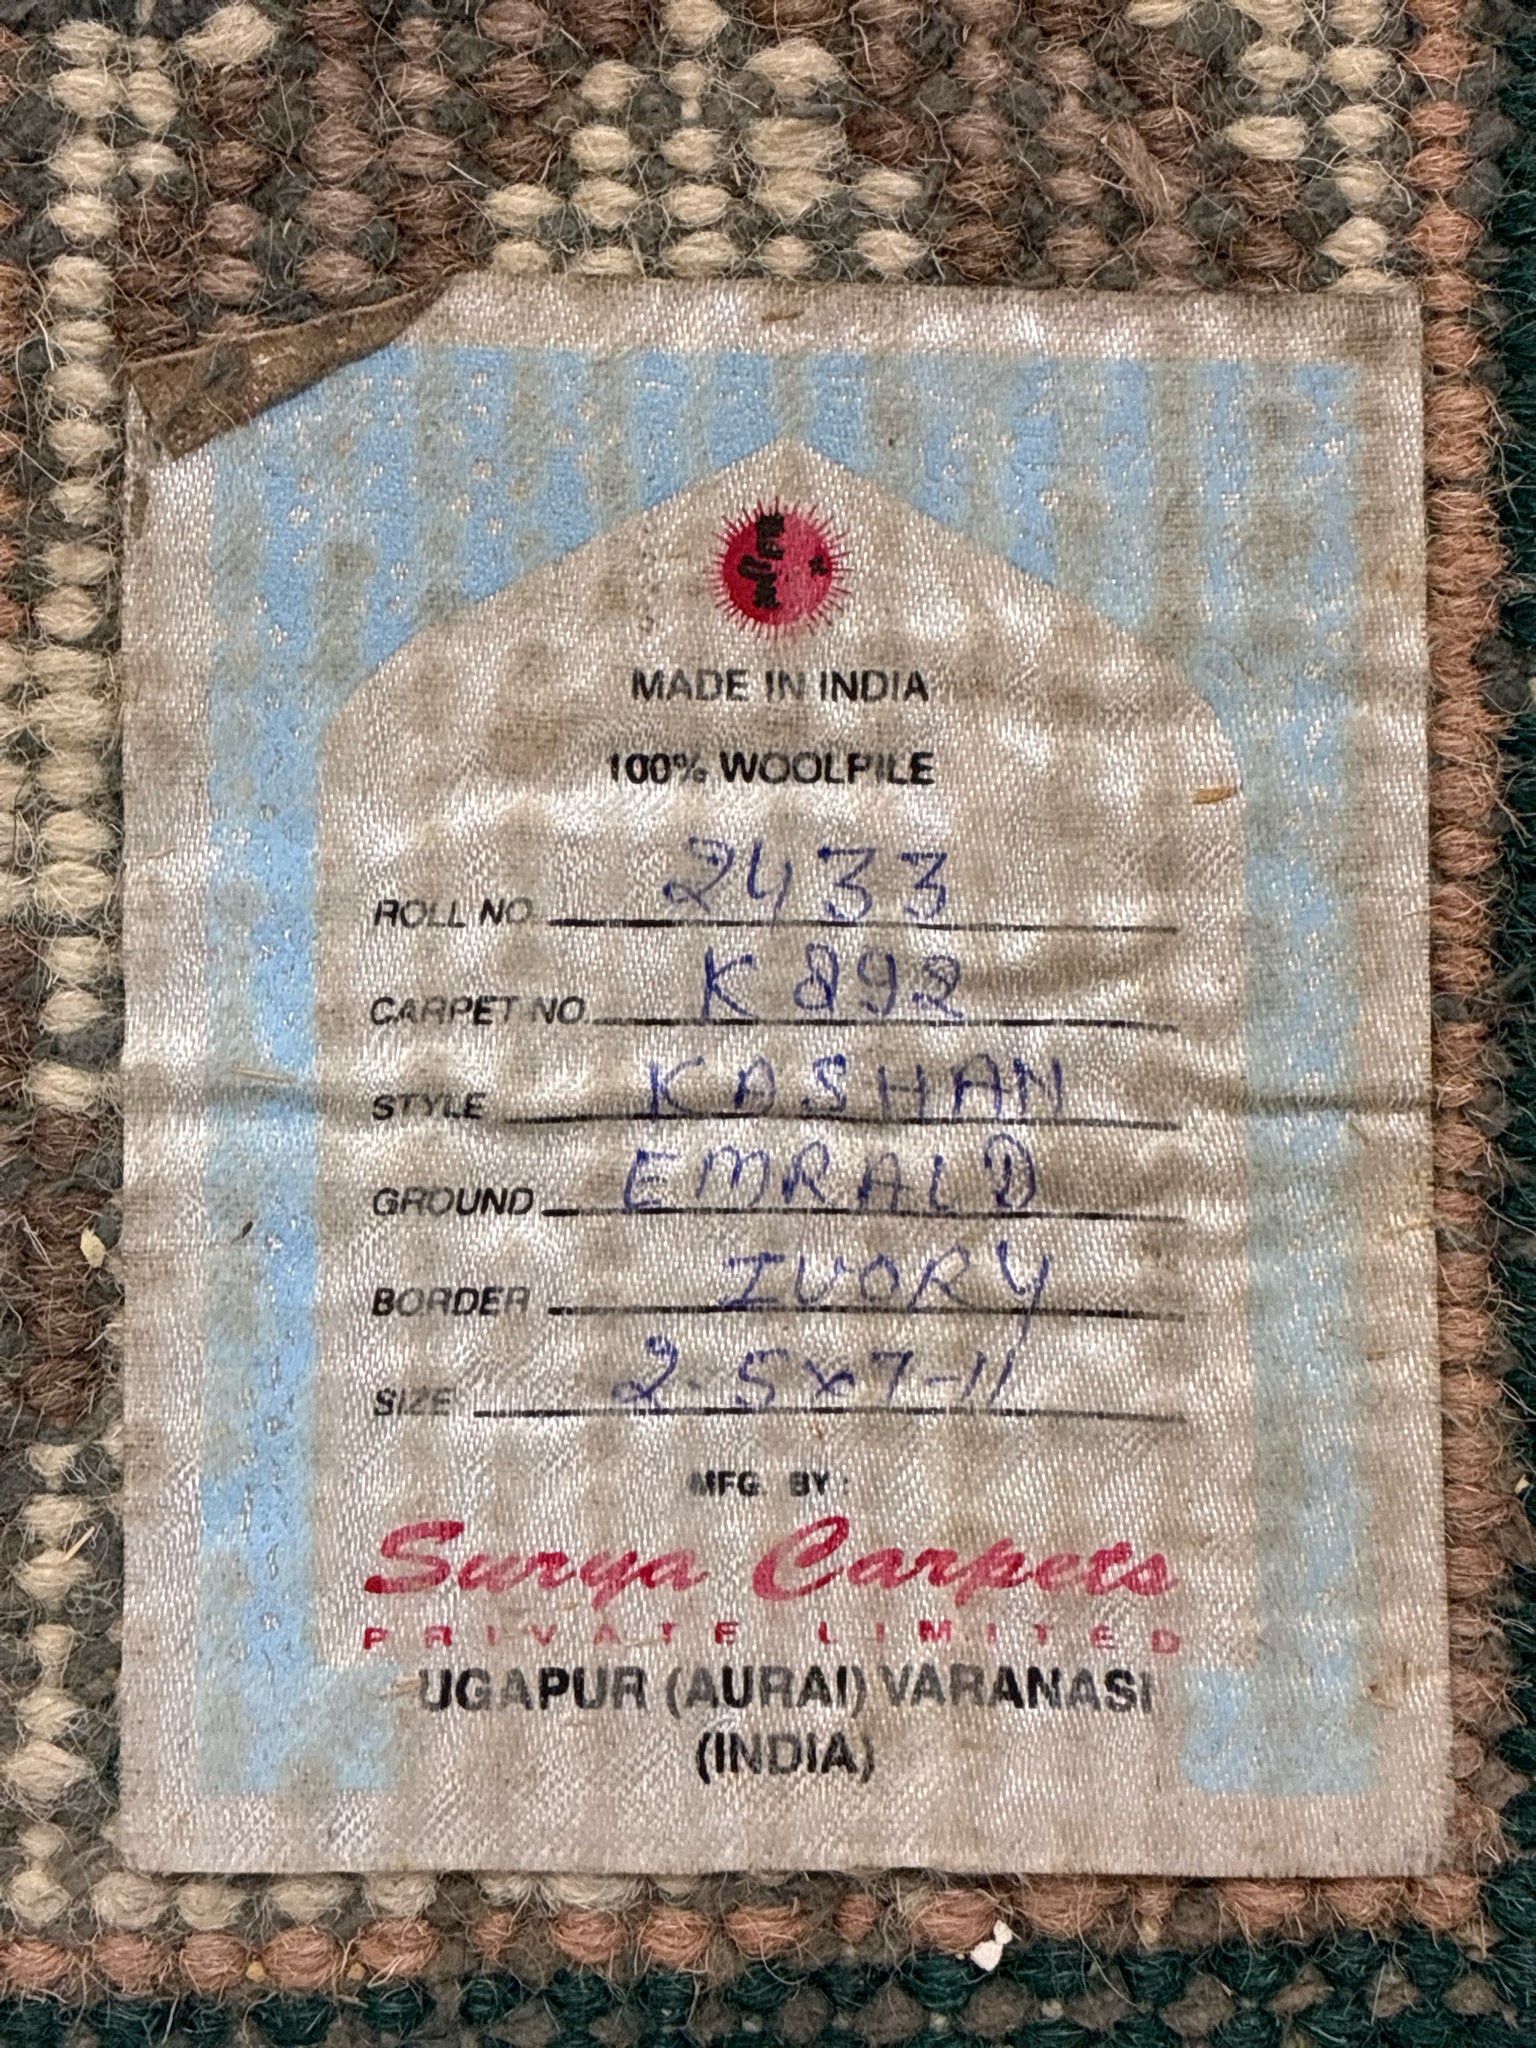 MADE IN INDIA
100% WOOLPILE
ROLL NO. 2433
CARPET NO. K892
STYLE KASHAN
GROUND EMRALD
BORDER IVORY
SIZE 2-5x7-11
MFG BY:
Surya Carpets
PRIVATE LIMITED
UGAPUR (AURAI) VARANASI
(INDIA)